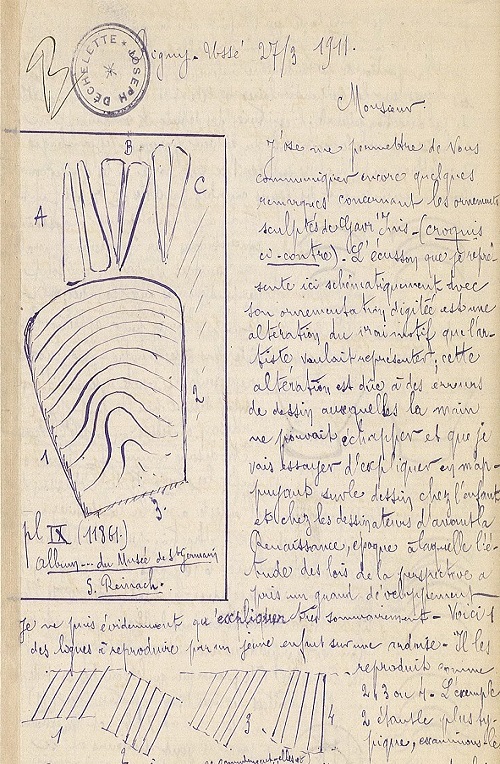 JOSEPH DÉCHELETTE
Rigny-Ussé 27/3 1911.
Monsieur
J'ose me permettre de vous
communiquer encore quelques
remarques concernant les ornements
sculptés de Gavr'Inis - (croquis
ci-contre). L'écusson que je repré-
sente ici schématiquement avec
son ornementation digitée est une
altération du vrai motif que l'ar-
tiste voulait représenter, cette
altération est dûe à des erreurs
de dessin auxquelles la main
ne pouvait échapper et que je
vais essayer d'expliquer en m'ap-
puyant sur le dessin chez l'enfant
et chez les dessinateurs d'avant la
Renaissance, époque à laquelle l'é-
tude des lois de la perspective a
pris un grand développement -
A
B
C
1
2
3
pl IX (11861)
album --- du Musée de St Germain
S. Reinach.
Je ne puis évidemment qu'expliquer très sommairement - Voici 1
des lignes à reproduire par un jeune enfant sur une ardoise - Il les
reproduit comme
2 & 3 ou 4 - L'exemple
2 étant le plus ty-
pique, examinons-le
1
2
3
4